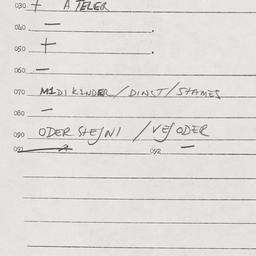 030 + A TELER
040 —
050 +
060 —
070 M1DI KINDER / DINST / STAMES
—
090 ODER STEJNI / VEJODER
091 092 —